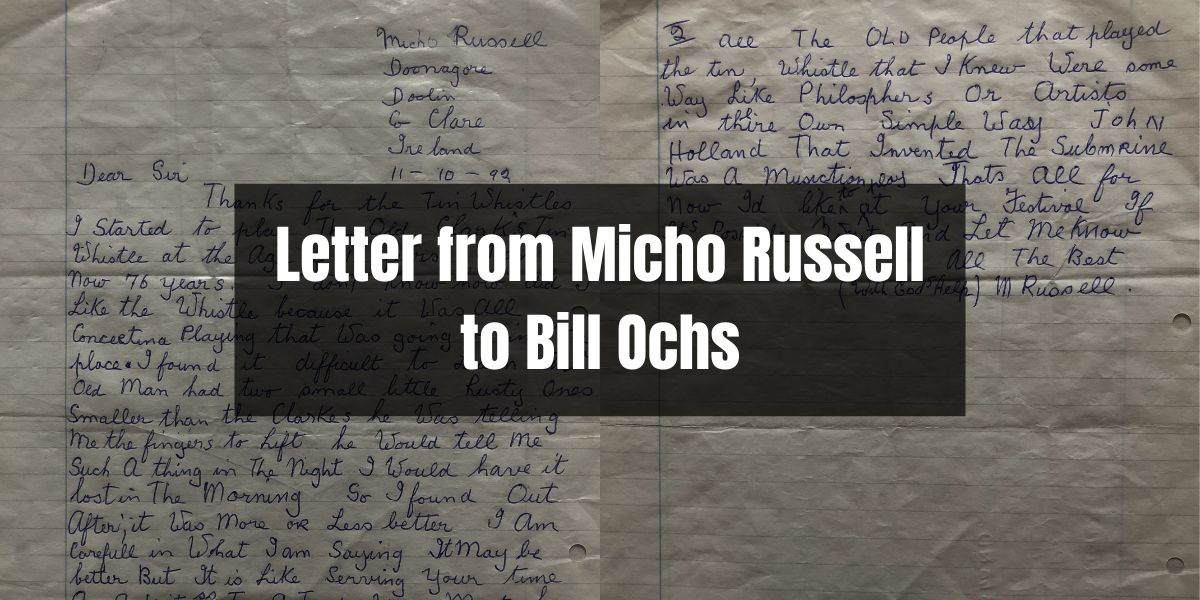 Micho Russell
Doonagore
Doolin
Co Clare
Ireland
11 - 10 - 92
Dear Sir
Thanks for the Tin Whistles
I Started to play The Old Clark's Tin
Whistle at the Age
Now 76 years. I don't know how did I
Like the Whistle because it Was All
Concertina Playing that Was going
place. I found it difficult to
Old Man had two small little Rusty Ones
Smaller than the Clarkes he Was telling
Me the fingers to Lift he Would tell Me
Such A thing in The Night I Would have it
lost in The Morning So I found Out
After, it Was More or Less better I Am
Carefull in What I am Saying It May be
better But It is Like Serving Your time
2
all The OLD People that played
the tin, Whistle that I Knew Were some
Way Like Philosphers Or Artists
in thire Own Simple Way JohN
Holland That Invented The Submrine
Was A Musiction Thats All for
Now Id like to at Your Festival If
Its And Let Me Know
All The Best
(With God's Help) M Russell.
Letter from Micho Russell
to Bill Ochs